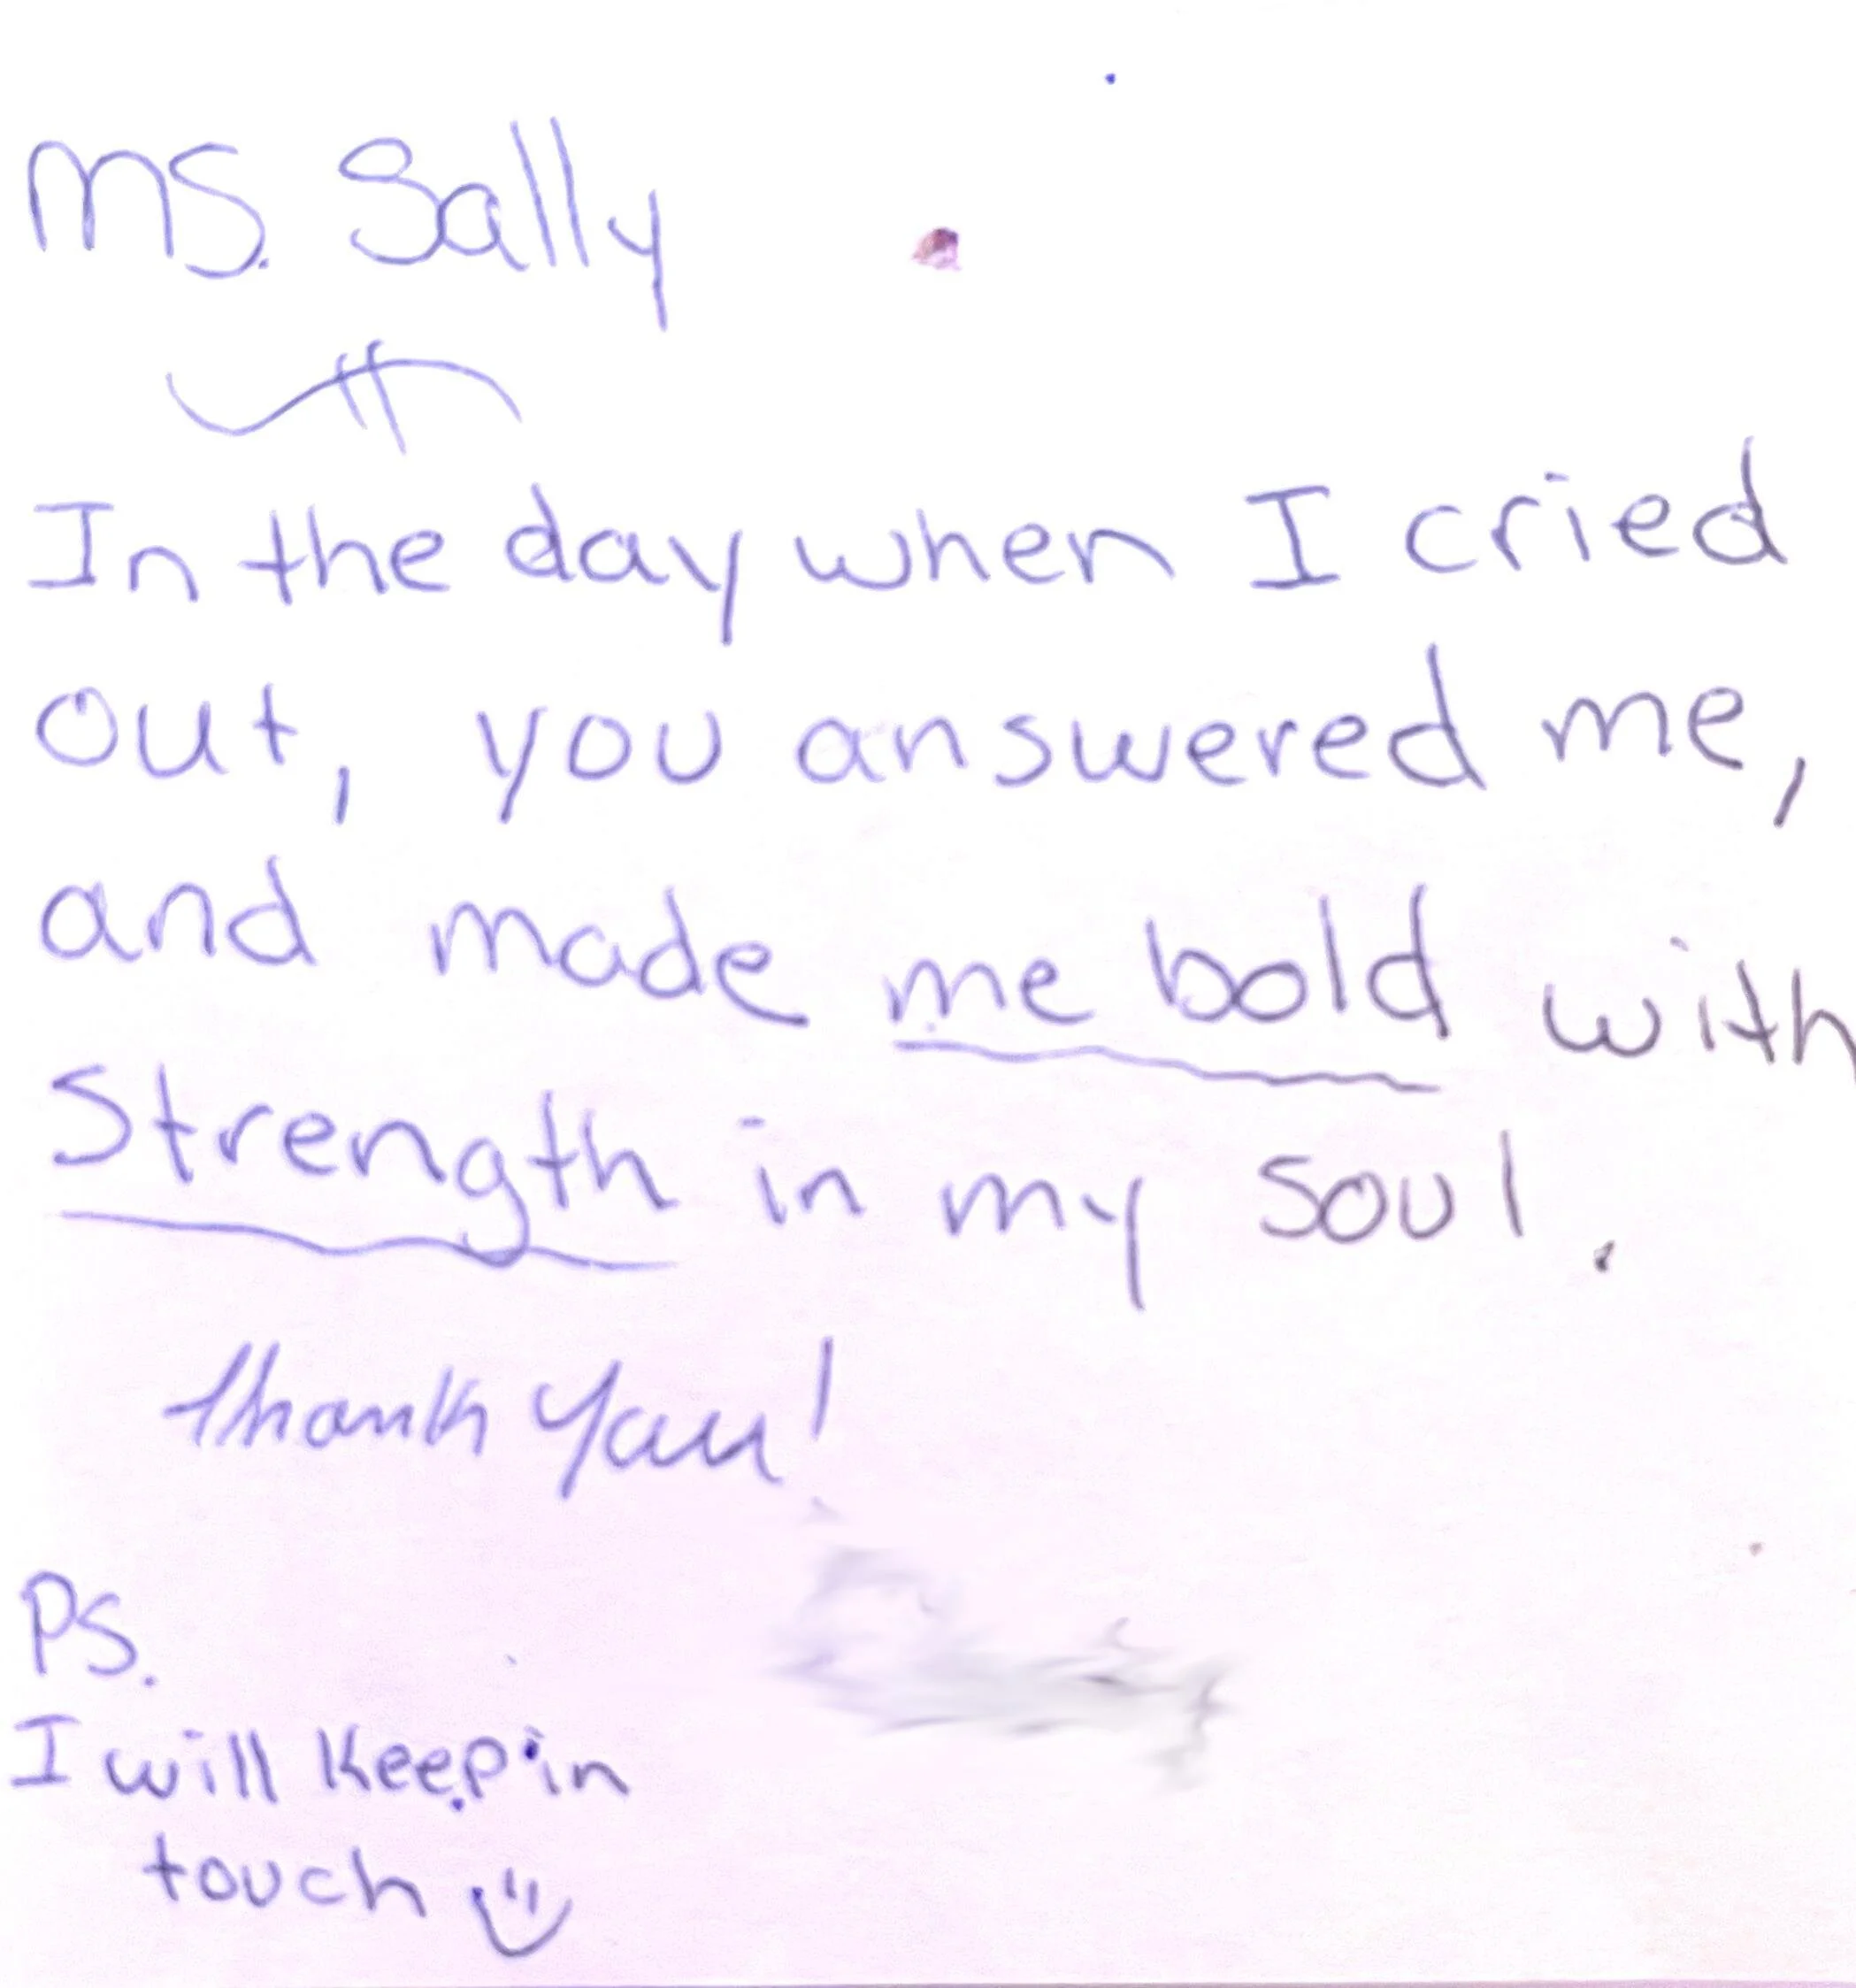 Ms. Sally
In the day when I cried
out, you answered me,
and made me bold with
Strength in my soul.
Thank You!
PS.
I will Keep in
touch